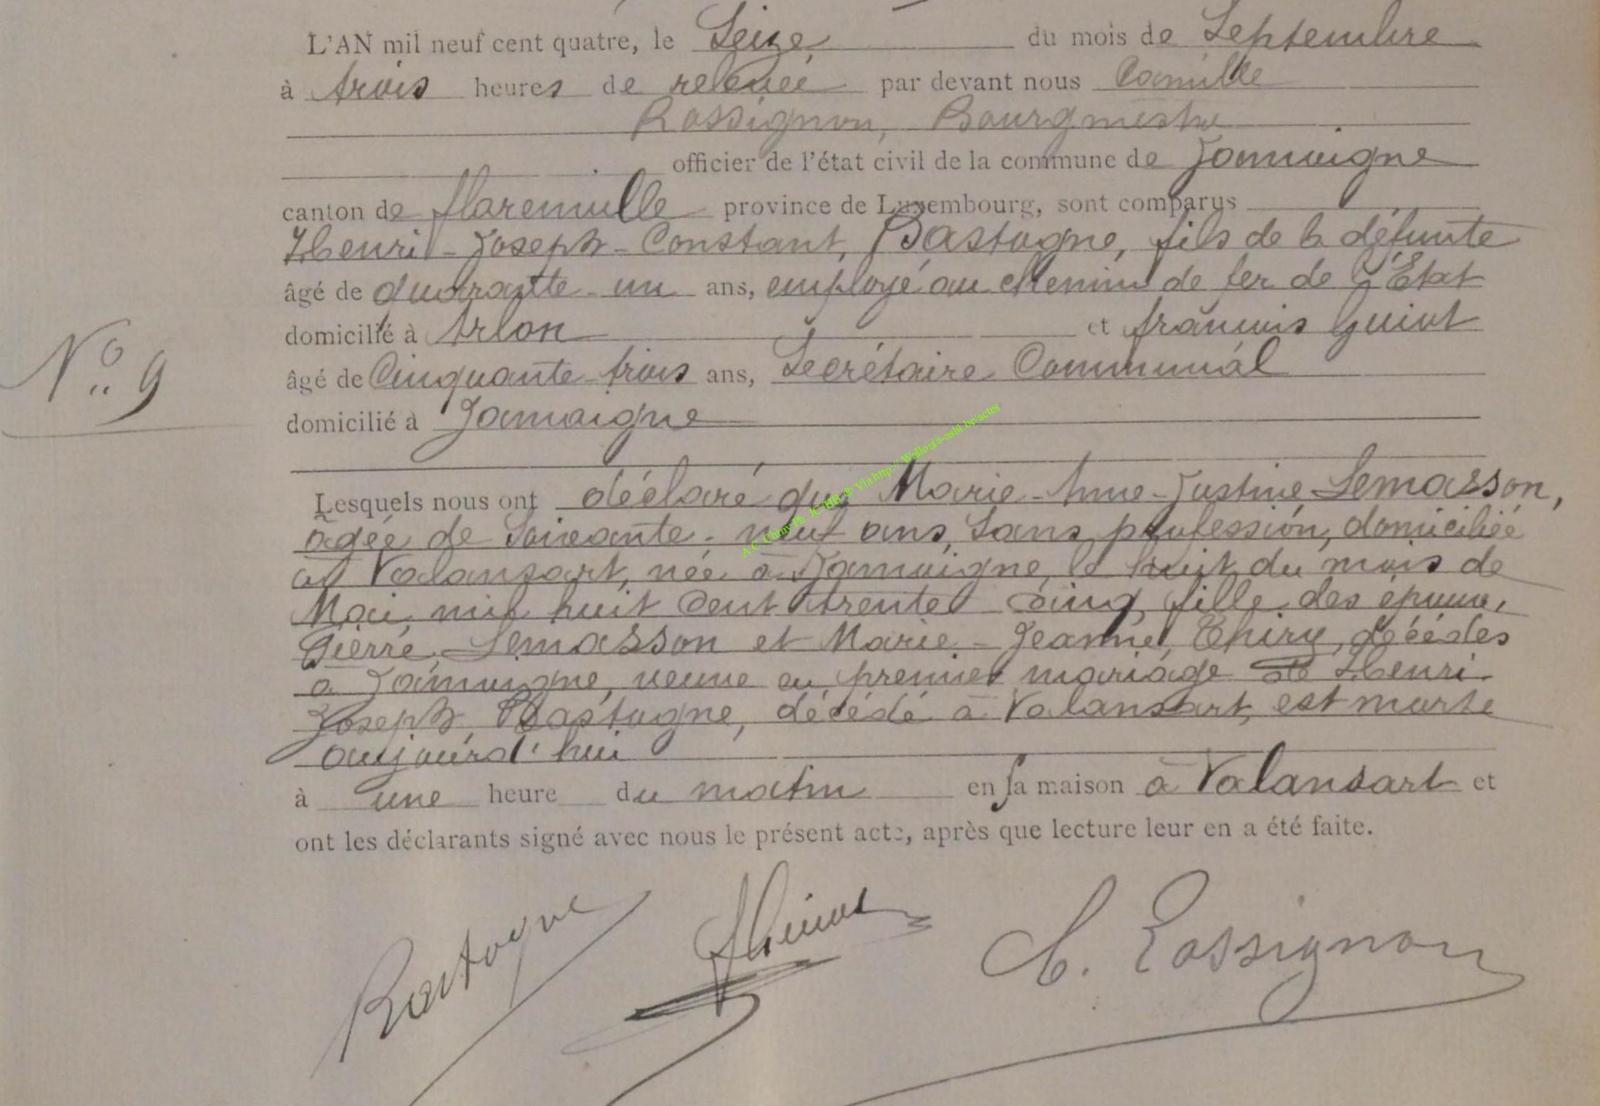 L'AN mil neuf cent quatre, le Seize du mois de Septembre
à trois heures de relevée par devant nous Camille
Rossignon, Bourgmestre
officier de l'état civil de la commune de Jamoigne
canton de Florenville province de Luxembourg, sont comparus
Henri-Joseph-Constant, Bastogne, fils de la défunte
âgé de quarante un ans, employé au chemin de fer de l'État
domicilié à Arlon et françois Guiot
N° 9
âgé de Cinquante trois ans, Secrétaire Communal
domicilié à Jamoigne
Lesquels nous ont déclaré que Marie-Anne-Justine Lemasson,
âgée de Soixante-neuf ans, Sans profession, domiciliée
à Valansart, née à Jamoigne, le huit du mois de
Mai, mil huit Cent trente cinq, fille des époux,
Pierre Lemasson et Marie-Jeanne, Thiry, décédés
à Jamoigne, veuve en premier mariage de Henri-
Joseph Bastogne, décédé à Valansart, est morte
aujourd'hui
à une heure du matin en sa maison à Valansart et
ont les déclarants signé avec nous le présent acte, après que lecture leur en a été faite.
Bastogne fGuiot C. Rossignon